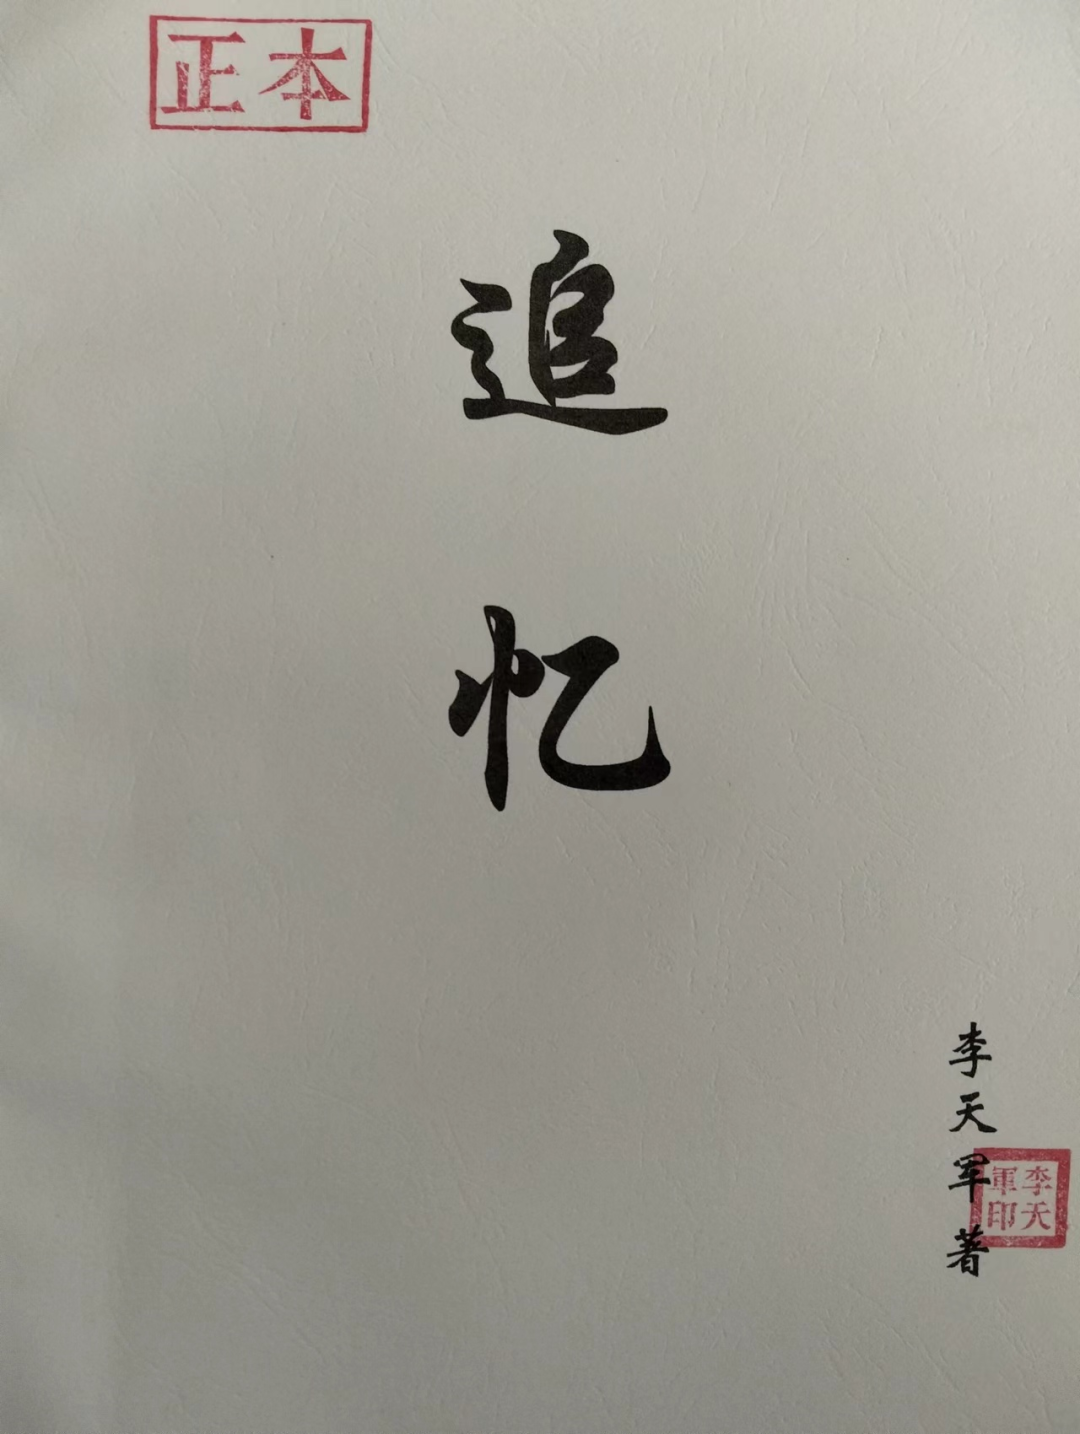 正本
追忆
李天军著
李天
軍印